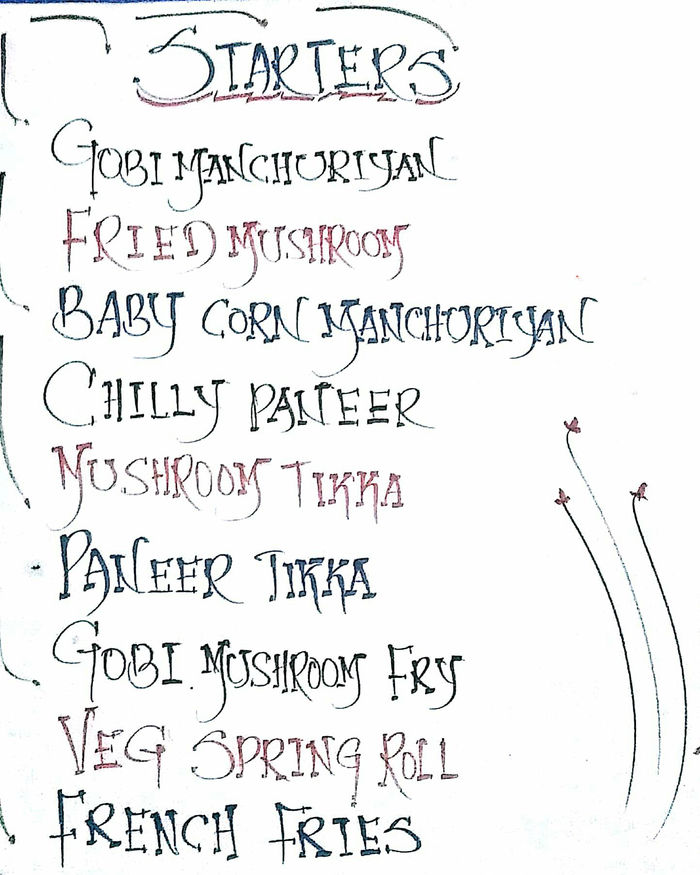 STARTERS
GOBI MANCHURIYAN
FRIED MUSHROOM
BABY CORN MANCHURIYAN
CHILLY PANEER
MUSHROOM TIKKA
PANEER TIKKA
GOBI MUSHROOM FRY
VEG SPRING ROLL
FRENCH FRIES